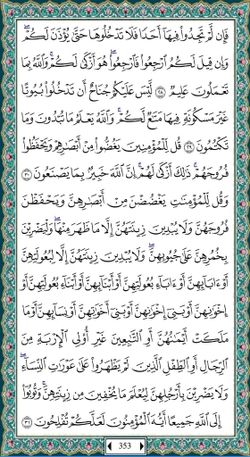 فَإِن لَّمْ تَجِدُوا۟ فِيهَآ أَحَدًا فَلَا تَدْخُلُوهَا حَتَّىٰ يُؤْذَنَ لَكُمْ ۖ
وَإِن قِيلَ لَكُمُ ٱرْجِعُوا۟ فَٱرْجِعُوا۟ ۖ هُوَ أَزْكَىٰ لَكُمْ ۚ وَٱللَّهُ بِمَا
تَعْمَلُونَ عَلِيمٌ ٢٨ لَّيْسَ عَلَيْكُمْ جُنَاحٌ أَن تَدْخُلُوا۟ بُيُوتًا
غَيْرَ مَسْكُونَةٍ فِيهَا مَتَـٰعٌ لَّكُمْ ۚ وَٱللَّهُ يَعْلَمُ مَا تُبْدُونَ وَمَا
تَكْتُمُونَ ٢٩ قُل لِّلْمُؤْمِنِينَ يَغُضُّوا۟ مِنْ أَبْصَـٰرِهِمْ وَيَحْفَظُوا۟
فُرُوجَهُمْ ۚ ذَٰلِكَ أَزْكَىٰ لَهُمْ ۗ إِنَّ ٱللَّهَ خَبِيرٌۢ بِمَا يَصْنَعُونَ ٣٠
وَقُل لِّلْمُؤْمِنَـٰتِ يَغْضُضْنَ مِنْ أَبْصَـٰرِهِنَّ وَيَحْفَظْنَ
فُرُوجَهُنَّ وَلَا يُبْدِينَ زِينَتَهُنَّ إِلَّا مَا ظَهَرَ مِنْهَا ۖ وَلْيَضْرِبْنَ
بِخُمُرِهِنَّ عَلَىٰ جُيُوبِهِنَّ ۖ وَلَا يُبْدِينَ زِينَتَهُنَّ إِلَّا لِبُعُولَتِهِنَّ
أَوْ ءَابَآئِهِنَّ أَوْ ءَابَآءِ بُعُولَتِهِنَّ أَوْ أَبْنَآئِهِنَّ أَوْ أَبْنَآءِ بُعُولَتِهِنَّ أَوْ
إِخْوَٰنِهِنَّ أَوْ بَنِىٓ إِخْوَٰنِهِنَّ أَوْ بَنِىٓ أَخَوَٰتِهِنَّ أَوْ نِسَآئِهِنَّ أَوْ مَا
مَلَكَتْ أَيْمَـٰنُهُنَّ أَوِ ٱلتَّـٰبِعِينَ غَيْرِ أُو۟لِى ٱلْإِرْبَةِ مِنَ
ٱلرِّجَالِ أَوِ ٱلطِّفْلِ ٱلَّذِينَ لَمْ يَظْهَرُوا۟ عَلَىٰ عَوْرَٰتِ ٱلنِّسَآءِ ۖ
وَلَا يَضْرِبْنَ بِأَرْجُلِهِنَّ لِيُعْلَمَ مَا يُخْفِينَ مِن زِينَتِهِنَّ ۚ وَتُوبُوٓا۟
إِلَى ٱللَّهِ جَمِيعًا أَيُّهَ ٱلْمُؤْمِنُونَ لَعَلَّكُمْ تُفْلِحُونَ ٣١
353